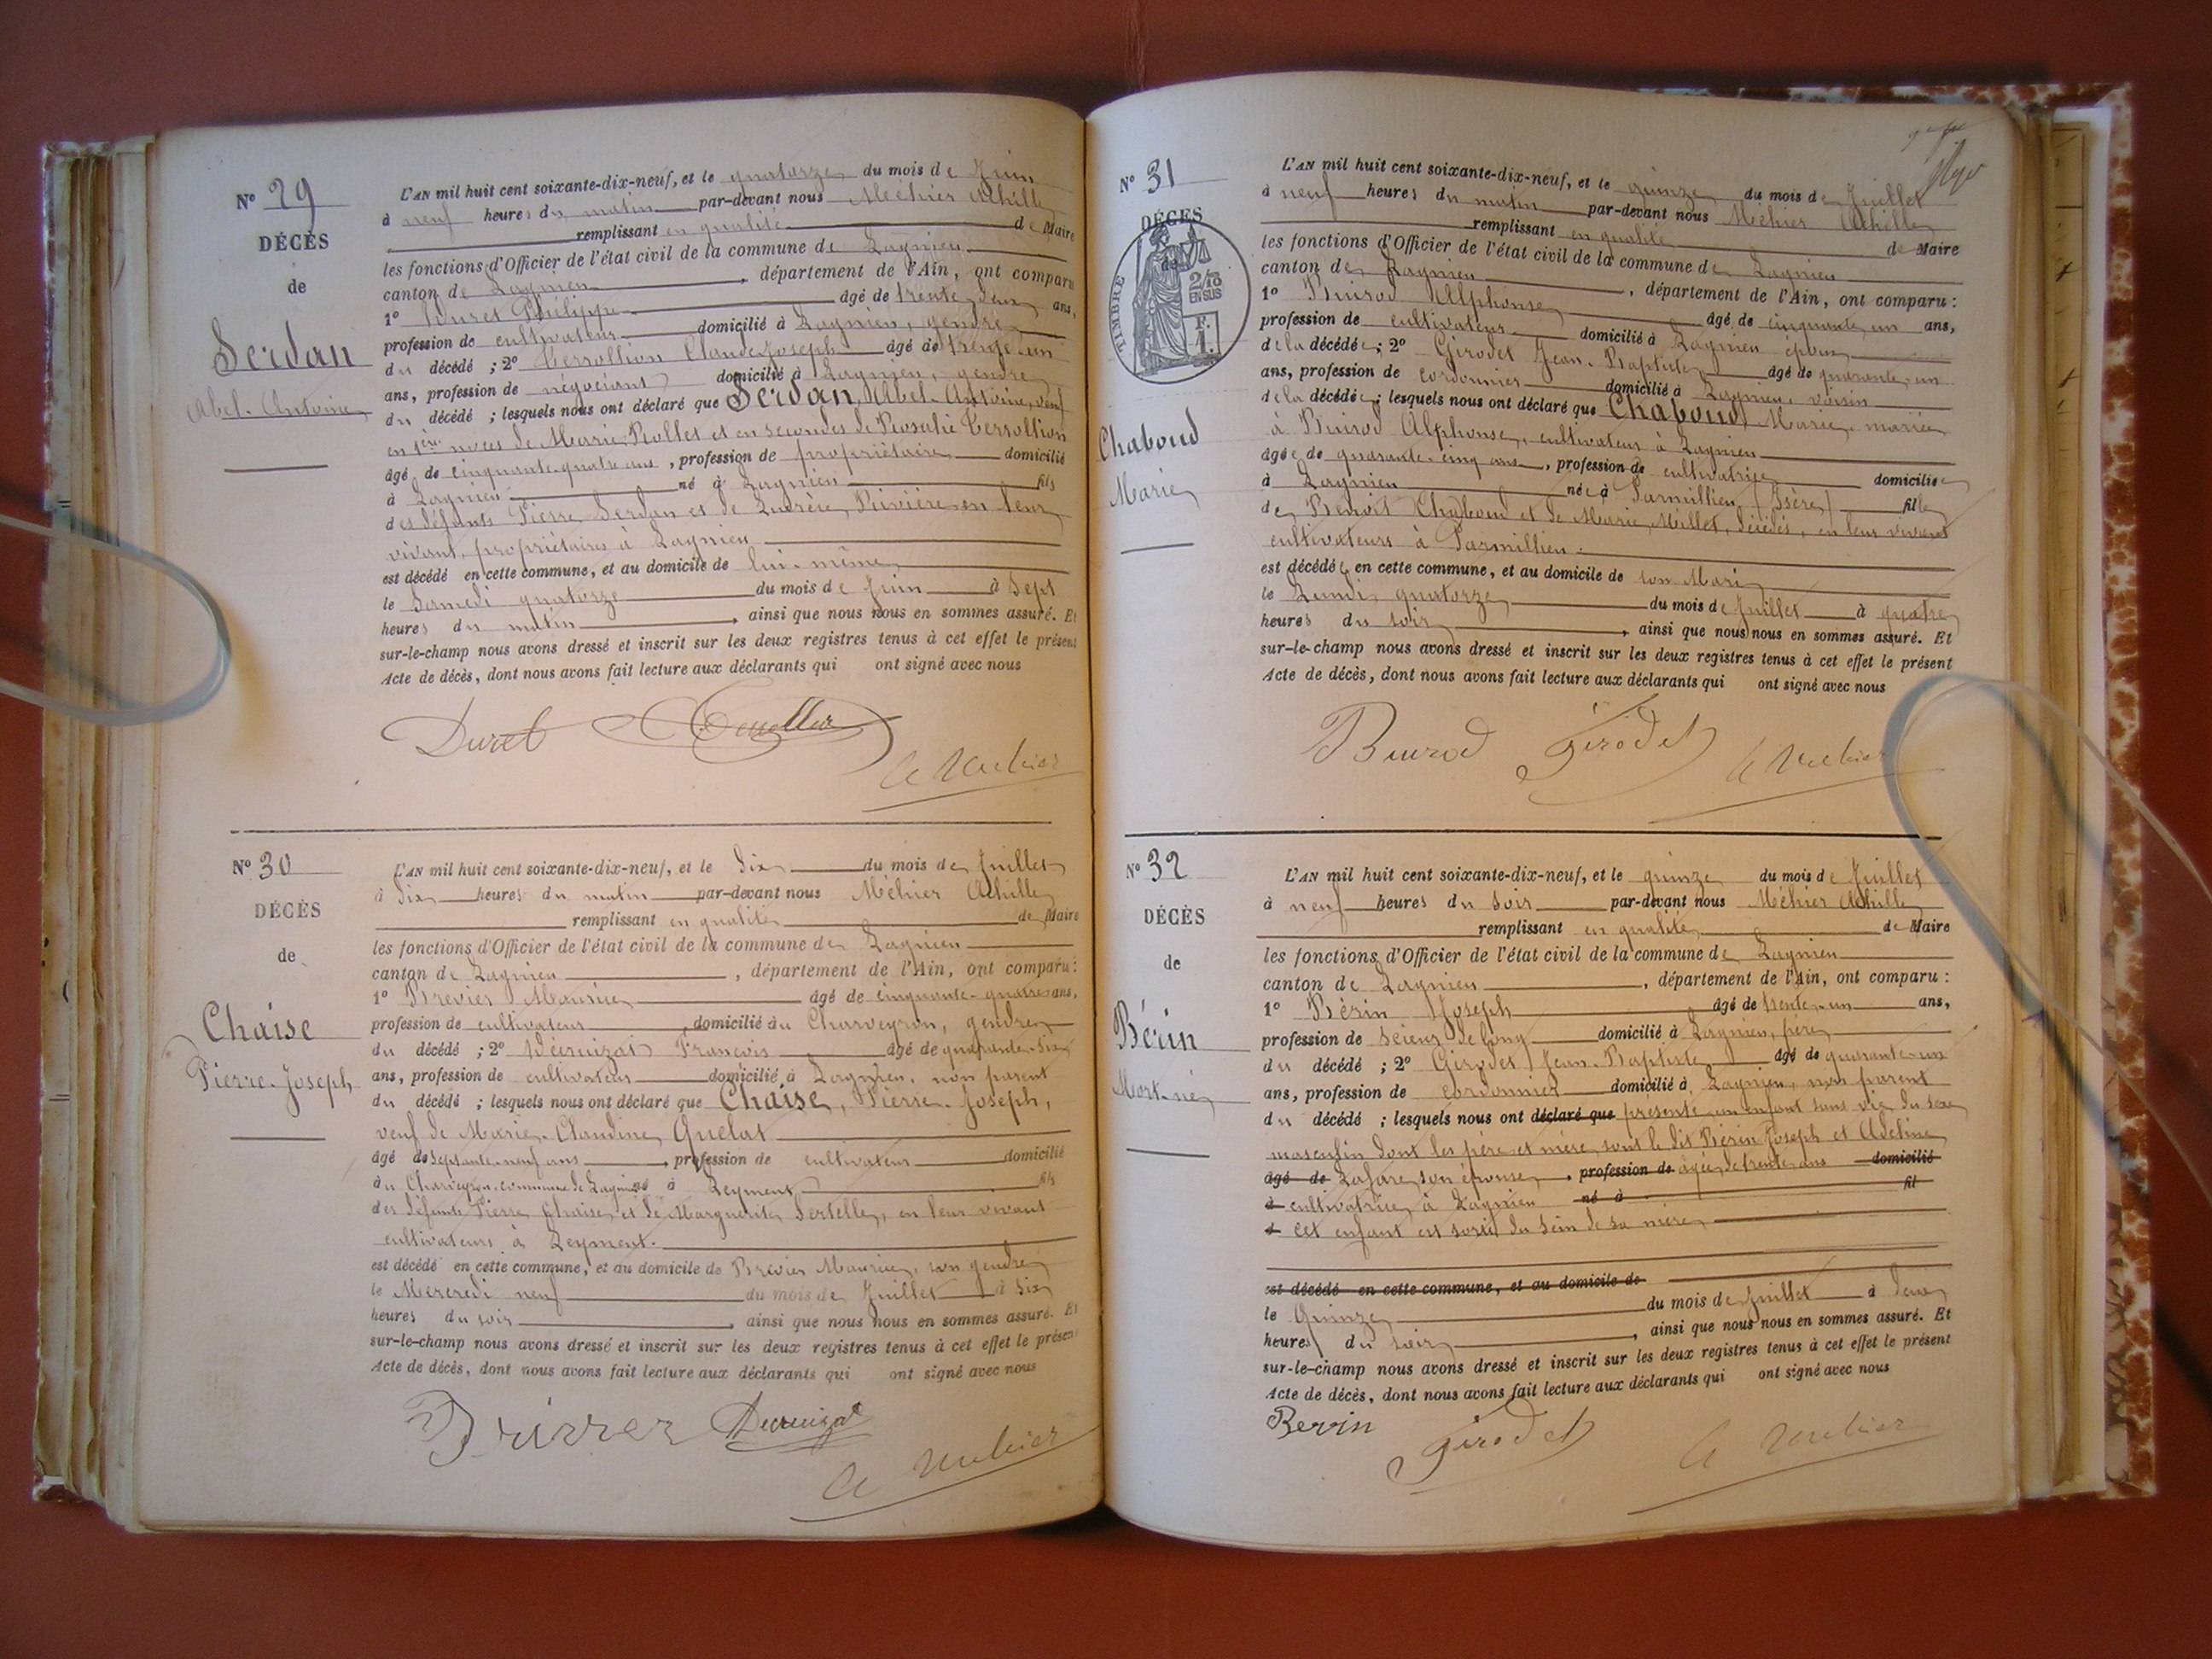 N° 29
DÉCÈS
de
Serdan
Abel-Antoine
L'AN mil huit cent soixante-dix-neuf, et le quatorze du mois de Juin
à neuf heures du matin par-devant nous Méhier Achille
remplissant en qualité de Maire
les fonctions d'Officier de l'état civil de la commune de Lagnieu
canton de Lagnieu, département de l'Ain, ont comparu
1° Duret Philippe âgé de trente deux ans,
profession de cultivateur domicilié à Lagnieu, gendre
du décédé ; 2° Claude Joseph âgé de trente-un
ans, profession de négociant domicilié à Lagnieu, gendre
du décédé ; lesquels nous ont déclaré que Serdan, Abel-Antoine, veuf
en 1ères noces de Marie Rollet et en secondes de Rosalie
âgé de cinquante-quatre ans, profession de propriétaire domicilié
à Lagnieu né à Lagnieu fils
des défunts Pierre Serdan et de Rivière en leur
vivant, propriétaires à Lagnieu
est décédé en cette commune, et au domicile de lui-même
le Samedi quatorze du mois de Juin à Sept
heures du matin, ainsi que nous nous en sommes assuré. Et
sur-le-champ nous avons dressé et inscrit sur les deux registres tenus à cet effet le présent
Acte de décès, dont nous avons fait lecture aux déclarants qui ont signé avec nous
Duret
A Mehier
N° 30
DÉCÈS
de
Chaise
Pierre-Joseph
L'AN mil huit cent soixante-dix-neuf, et le dix du mois de Juillet
à dix heures du matin par-devant nous Méhier Achille
remplissant en qualité de Maire
les fonctions d'Officier de l'état civil de la commune de Lagnieu
canton de Lagnieu, département de l'Ain, ont comparu :
1° Brevier Maurice âgé de cinquante-quatre ans,
profession de cultivateur, domicilié au Charveyron, gendre
du décédé ; 2° Décruizat François âgé de quarante-six
ans, profession de cultivateur domicilié à Lagnieu, non parent
du décédé ; lesquels nous ont déclaré que Chaise, Pierre-Joseph,
veuf de Marie-Claudine Quelat
âgé de Septante-neuf ans, profession de cultivateur domicilié
au Charveyron, commune de Lagnieu né à Leyment fils
des défunts Pierre Chaise, et de Marguerite Sertelle, en leur vivant
cultivateurs à Leyment.
est décédé en cette commune, et au domicile de Brevier Maurice, son gendre
le Mercredi neuf du mois de Juillet à Six
heures du soir, ainsi que nous nous en sommes assuré. Et
sur-le-champ nous avons dressé et inscrit sur les deux registres tenus à cet effet le présent
Acte de décès, dont nous avons fait lecture aux déclarants qui ont signé avec nous
Decruizat
A Mehier
N° 31
DÉCÈS
de
TIMBRE
2/10
EN SUS
F.
1.
Chaboud
Marie
L'AN mil huit cent soixante-dix-neuf, et le quinze du mois de Juillet
à neuf heures du matin par-devant nous Méhier Achille
remplissant en qualité de Maire
les fonctions d'Officier de l'état civil de la commune de Lagnieu
canton de Lagnieu, département de l'Ain, ont comparu :
1° Buirod Alphonse âgé de cinquante un ans,
profession de cultivateur domicilié à Lagnieu époux
de la décédée ; 2° Girodet Jean-Baptiste âgé de quarante-un
ans, profession de cordonnier domicilié à Lagnieu, voisin
de la décédée ; lesquels nous ont déclaré que Chaboud Marie, mariée
à Buirod Alphonse, cultivateur à Lagnieu
âgée de quarante-cinq ans, profession de cultivatrice domiciliée
à Lagnieu née à Parmillieu (Isère) fille
de Benoit Chaboud et de Marie Millet, décédés, en leur vivant
cultivateurs à Parmillieu.
est décédée en cette commune, et au domicile de son Mari
le Lundi quatorze du mois de Juillet à quatre
heures du soir, ainsi que nous nous en sommes assuré. Et
sur-le-champ nous avons dressé et inscrit sur les deux registres tenus à cet effet le présent
Acte de décès, dont nous avons fait lecture aux déclarants qui ont signé avec nous
Buirod Girodet A Mehier
N° 32
DÉCÈS
de
Bérin
Mort-né
L'AN mil huit cent soixante-dix-neuf, et le quinze du mois de Juillet
à neuf heures du soir par-devant nous Méhier Achille
remplissant en qualité de Maire
les fonctions d'Officier de l'état civil de la commune de Lagnieu
canton de Lagnieu, département de l'Ain, ont comparu :
1° Bérin Joseph âgé de trente-un ans,
profession de scieur de long domicilié à Lagnieu, père
du décédé ; 2° Girodet Jean-Baptiste âgé de quarante-un
ans, profession de cordonnier domicilié à Lagnieu, non parent
du décédé ; lesquels nous ont déclaré que présenté un enfant sans vie du sexe
masculin dont les père et mère sont le dit Bérin Joseph et Adeline
âgé de Lafare, son épouse, profession de âgée de trente ans domicilié
à cultivatrice, à Lagnieu né à fil
d cet enfant est sorti du sein de sa mère
est décédé en cette commune, et au domicile de
le Quinze du mois de Juillet à deux
heures du soir, ainsi que nous nous en sommes assuré. Et
sur-le-champ nous avons dressé et inscrit sur les deux registres tenus à cet effet le présent
Acte de décès, dont nous avons fait lecture aux déclarants qui ont signé avec nous
Berrin Girodet A Mehier